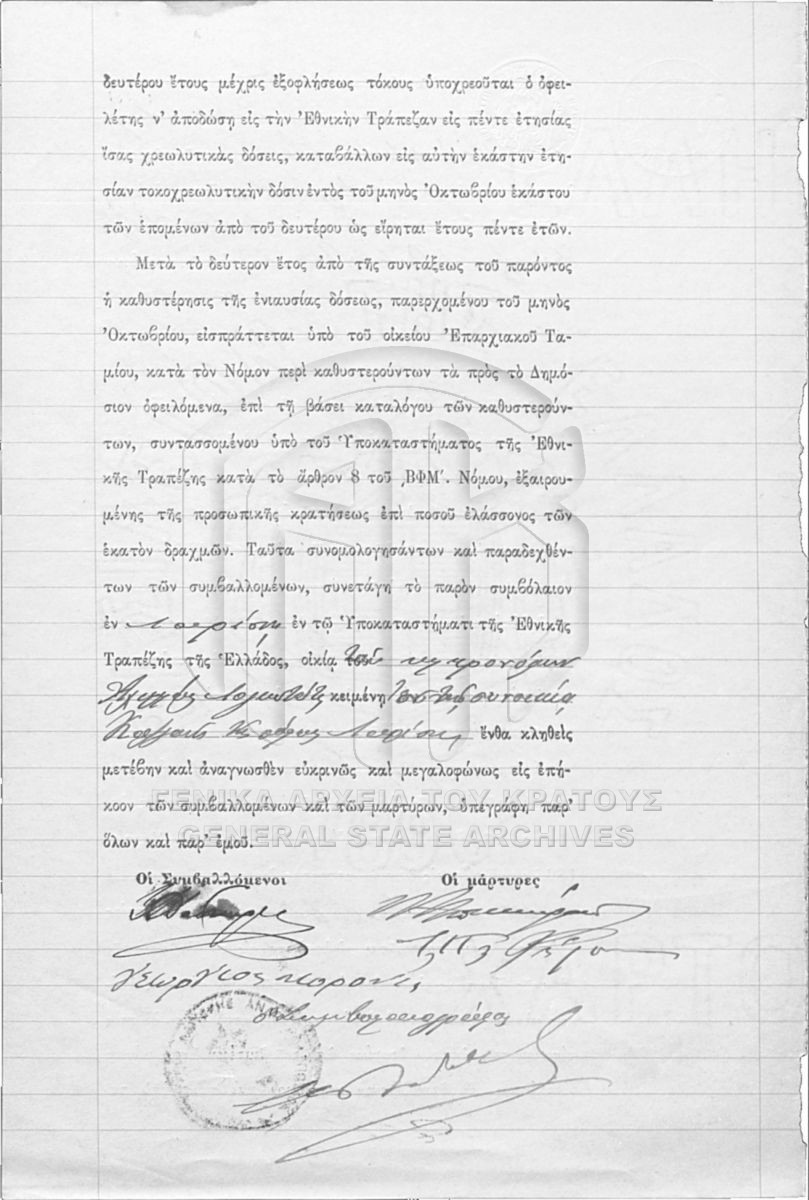 δευτέρου ἔτους μέχρις ἐξοφλήσεως τόκους ὑποχρεοῦται ὁ ὀφει-
λέτης ν' ἀποδώσῃ εἰς τὴν Ἐθνικὴν Τράπεζαν εἰς πέντε ἐτησίας
ἴσας χρεωλυτικὰς δόσεις, καταβάλλων εἰς αὐτὴν ἑκάστην ἐτη-
σίαν τοκοχρεωλυτικὴν δόσιν ἐντὸς τοῦ μηνὸς Ὀκτωβρίου ἑκάστου
τῶν ἑπομένων ἀπὸ τοῦ δευτέρου ὡς εἴρηται ἔτους πέντε ἐτῶν.
Μετὰ τὸ δεύτερον ἔτος ἀπὸ τῆς συντάξεως τοῦ παρόντος
ἡ καθυστέρησις τῆς ἐνιαυσίας δόσεως, παρερχομένου τοῦ μηνὸς
Ὀκτωβρίου, εἰσπράττεται ὑπὸ τοῦ οἰκείου Ἐπαρχιακοῦ Τα-
μίου, κατὰ τὸν Νόμον περὶ καθυστερούντων τὰ πρὸς τὸ Δημό-
σιον ὀφειλόμενα, ἐπὶ τῇ βάσει καταλόγου τῶν καθυστερούν-
των, συντασσομένου ὑπὸ τοῦ Ὑποκαταστήματος τῆς Ἐθνι-
κῆς Τραπέζης κατὰ τὸ ἄρθρον 8 τοῦ ͵ΒΦΜ΄. Νόμου, ἐξαιρου-
μένης τῆς προσωπικῆς κρατήσεως ἐπὶ ποσοῦ ἐλάσσονος τῶν
ἑκατὸν δραχμῶν. Ταῦτα συνομολογησάντων καὶ παραδεχθέν-
των τῶν συμβαλλομένων, συνετάγη τὸ παρὸν συμβόλαιον
ἐν Λαρίσῃ ἐν τῷ Ὑποκαταστήματι τῆς Ἐθνικῆς
Τραπέζης τῆς Ἑλλάδος, οἰκίᾳ τῶν κληρονόμων
κειμένῃ συνοικίᾳ
Λαρίσης, ἔνθα κληθεὶς
μετέβην καὶ ἀναγνωσθὲν εὐκρινῶς καὶ μεγαλοφώνως εἰς ἐπή-
κοον τῶν συμβαλλομένων καὶ τῶν μαρτύρων, ὑπεγράφη παρ'
ὅλων καὶ παρ' ἐμοῦ.
ΓΕΝΙΚΑ ΑΡΧΕΙΑ ΤΟΥ ΚΡΑΤΟΥΣ
GENERAL STATE ARCHIVES
Οἱ Συμβαλλόμενοι Οἱ μάρτυρες
Γεώργιος
ὁ Συμβολαιογράφος